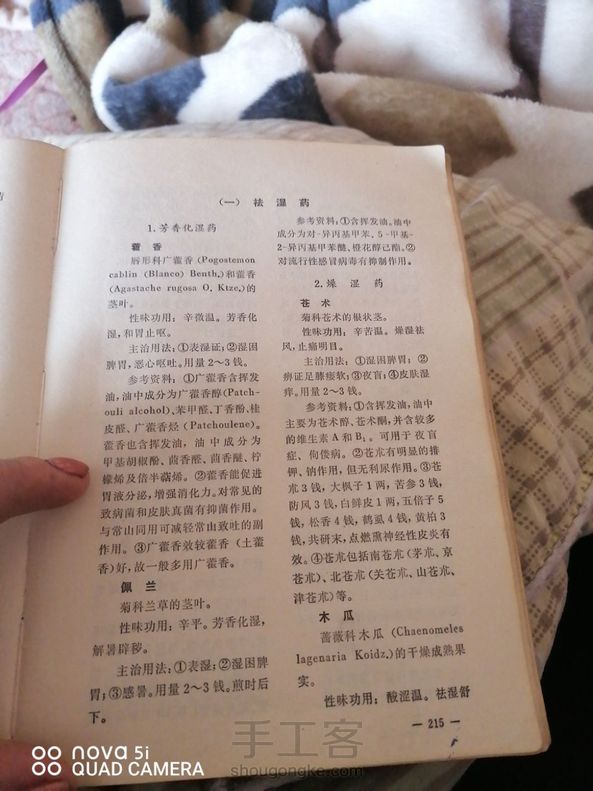 (一) 祛湿药
1.芳香化湿药
藿香
唇形科广藿香(Pogostemon
cablin (Blanco) Benth.)和藿香
(Agastache rugosa O. Ktze.)的
茎叶。
性味功用：辛微温。芳香化
湿,和胃止呕。
主治用法;①表湿证;②湿困
脾胃,恶心呕吐。用量2～3钱。
参考资料：①广藿香含挥发
油,油中成分为广藿香醇(Patch-
ouli alcohol)、苯甲醛、丁香酚、桂
皮醛、广藿香烃(Patchoulene)。
藿香也含挥发油，油中成分为
甲基胡椒酚、茴香醛、茴香醚、柠
檬烯及倍半萜烯。②藿香能促进
胃液分泌,增强消化力。对常见的
致病菌和皮肤真菌有抑菌作用。
与常山同用可减轻常山致吐的副
作用。③广藿香效较藿香(土藿
香)好,故一般多用广藿香。
佩兰
菊科兰草的茎叶。
性味功用：辛平。芳香化湿,
解暑辟秽。
主治用法；①表湿;②湿困脾
胃;③感暑。用量2～3钱。煎时后
下。
参考资料;①含挥发油。油中
成分为对-异丙基甲苯、5-甲基-
2-异丙基甲苯醚、橙花醇已酯。②
对流行性感冒病毒有抑制作用。
2.燥湿药
苍术
菊科苍术的根状茎。
性味功用：辛苦温。燥湿祛
风,止痛明目。
主治用法;①湿困脾胃;②
痹证足膝痿软;③夜盲;④皮肤湿
痒。用量2～3钱。
参考资料;①含挥发油,油中
主要为苍术醇、苍术酮,并含较多
的维生素A和B₁。可用于夜盲
症、佝偻病。②苍朮有明显的排
钾、钠作用,但无利尿作用。③苍
朮3钱,大枫子1两,苦参3钱,
防风3钱,白鲜皮1两,五倍子5
钱,松香4钱,鹤虱4钱,黄柏3
钱,共研末,点燃熏神经性皮炎有
效。④苍朮包括南苍朮(茅朮、京
苍朮)、北苍朮(关苍朮、山苍朮、
津苍朮)等。
木瓜
蔷薇科木瓜(Chaenomeles
lagenaria Koidz.)的干燥成熟果
实。
性味功用：酸涩温。祛湿舒
— 215 —
nova 5i
QUAD CAMERA
手工客
shougongke.com